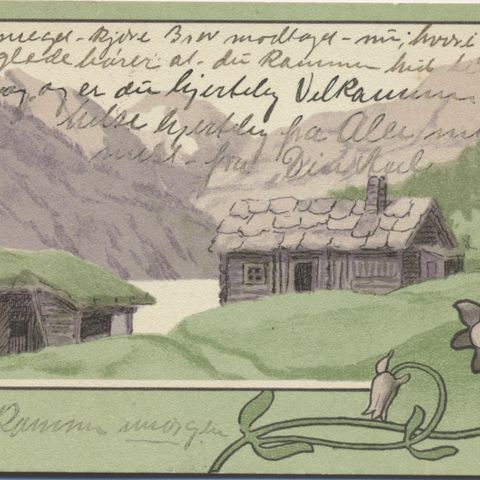 meget kjære Brev modtaget nu, hvori
glede hører at du kommer hid
og er du hjertelig Velkommen
hilse hjertelig fra Alle
mest fra Din
Kommer imorgen